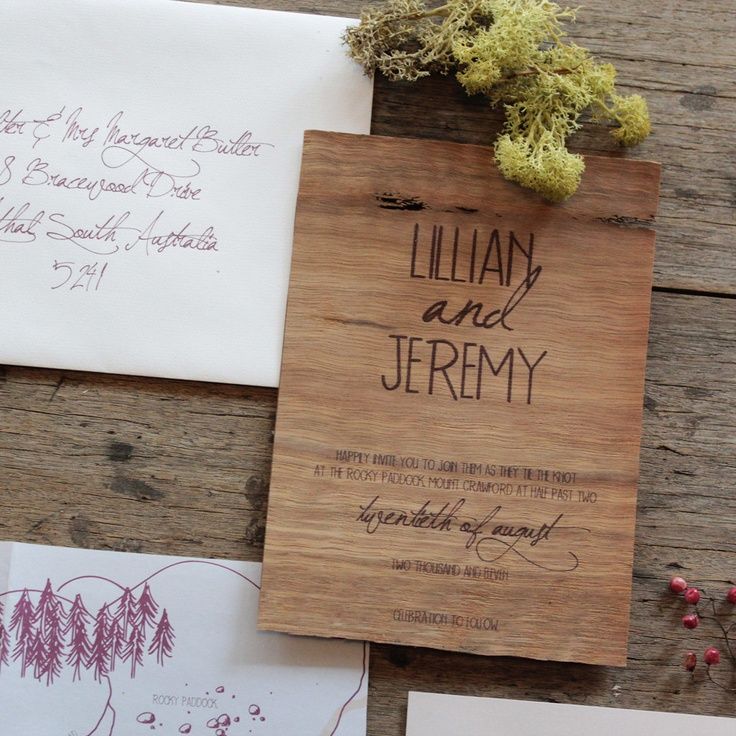 & Mrs Margaret Butler
8 Bracewood Drive
South Australia
5241
LILLIAN
and
JEREMY
HAPPILY INVITE YOU TO JOIN THEM AS THEY TIE THE KNOT
AT THE ROCKY PADDOCK, MOUNT CRAWFORD AT HALF PAST TWO
twentieth of august
TWO THOUSAND AND ELEVEN
CELEBRATION TO FOLLOW
ROCKY PADDOCK